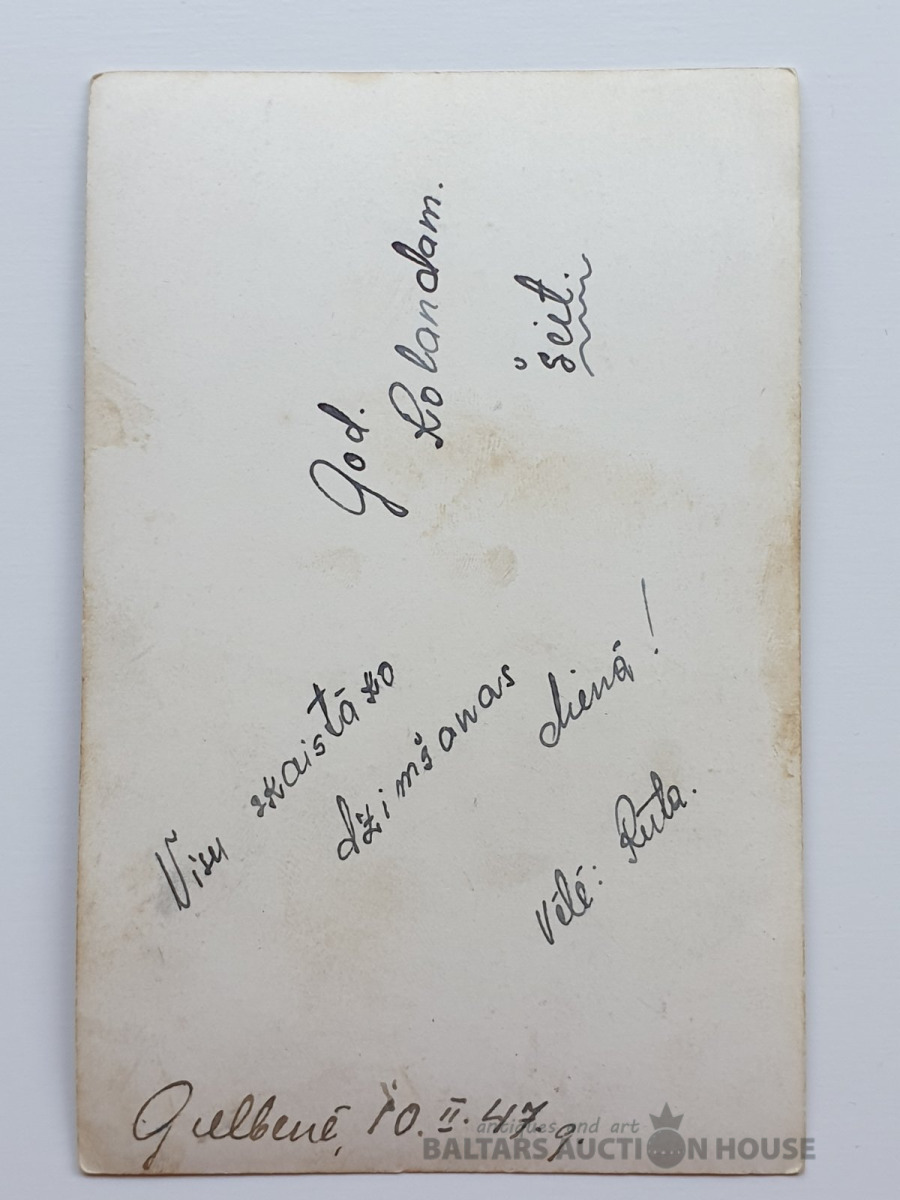 God.
Rolandam.
šeit.
Visu skaistāko
džimšanas
dienā!
Vēlē: Ruta.
Gulbenē, 10. II. 47. g.
antiques and art
BALTARS AUCTION HOUSE